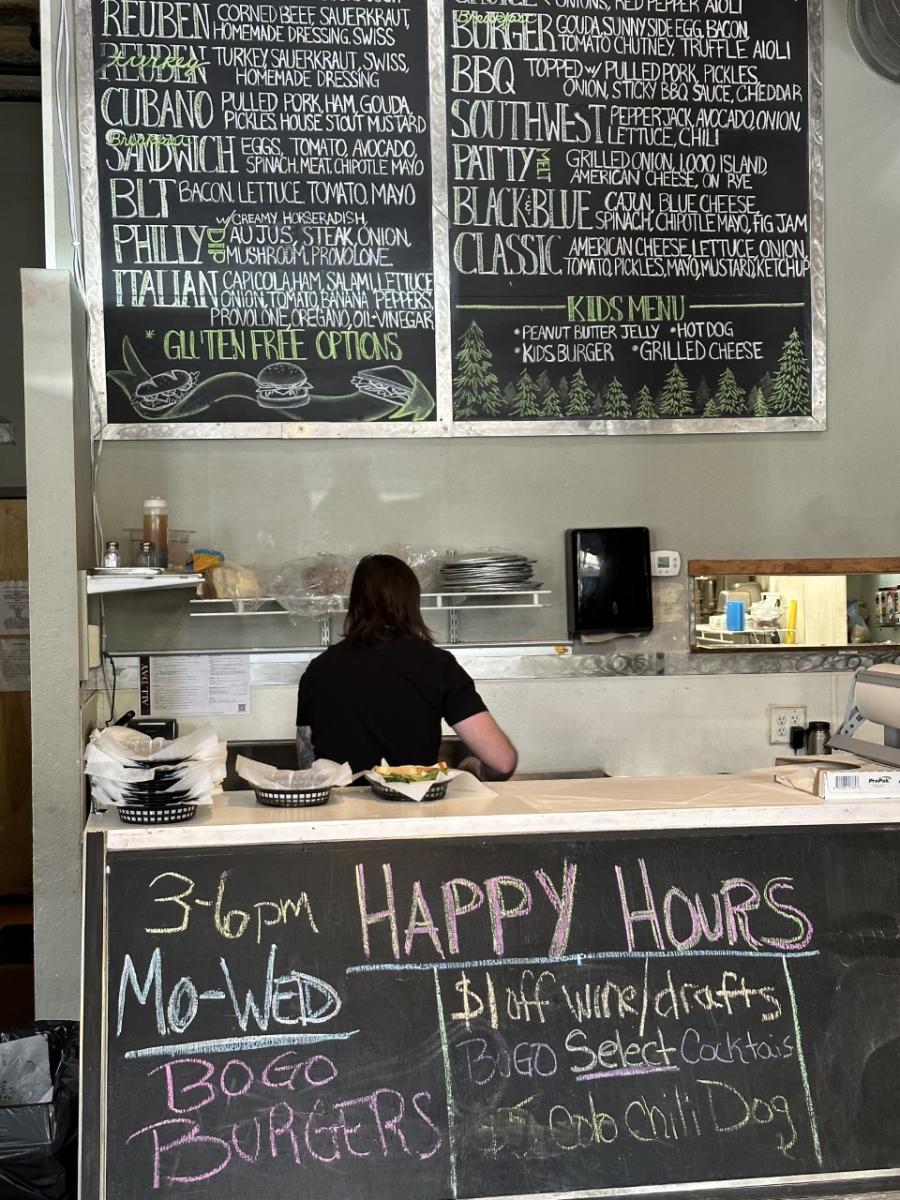 REUBEN CORNED BEEF, SAUERKRAUT,
HOMEMADE DRESSING, SWISS
turkey
REUBEN TURKEY, SAUERKRAUT, SWISS,
HOMEMADE DRESSING
CUBANO PULLED PORK, HAM, GOUDA,
PICKLES, HOUSE STOUT MUSTARD
Breakfast
SANDWICH EGGS, TOMATO, AVOCADO,
SPINACH, MEAT, CHIPOTLE MAYO
BLT BACON, LETTUCE, TOMATO, MAYO
PHILLY DIP w/ CREAMY HORSERADISH,
AU JUS, STEAK, ONION,
MUSHROOM, PROVOLONE.
ITALIAN CAPICOLA, HAM, SALAMI, LETTUCE
ONION, TOMATO, BANANA PEPPERS,
PROVOLONE, OREGANO, OIL+VINEGAR
* GLUTEN FREE OPTIONS
ONIONS, RED PEPPER AIOLI
Breakfast
BURGER GOUDA, SUNNYSIDE EGG, BACON,
TOMATO CHUTNEY, TRUFFLE AIOLI
BBQ TOPPED w/ PULLED PORK, PICKLES,
ONION, STICKY BBQ SAUCE, CHEDDAR
SOUTHWEST PEPPERJACK, AVOCADO, ONION,
LETTUCE, CHILI
PATTY MELT GRILLED ONION, 1,000 ISLAND,
AMERICAN CHEESE, ON RYE
BLACK & BLUE CAJUN, BLUE CHEESE,
SPINACH, CHIPOTLE MAYO, FIG JAM
CLASSIC AMERICAN CHEESE, LETTUCE, ONION,
TOMATO, PICKLES, MAYO, MUSTARD, KETCHUP
KIDS MENU
•PEANUT BUTTER JELLY •HOT DOG
•KIDS BURGER •GRILLED CHEESE
ALL DAY
ProPak
3-6pm HAPPY HOURS
MO-WED
BOGO
BURGERS
$1 off wine/drafts
BOGO Select Cocktails
$5 Colo Chili Dog